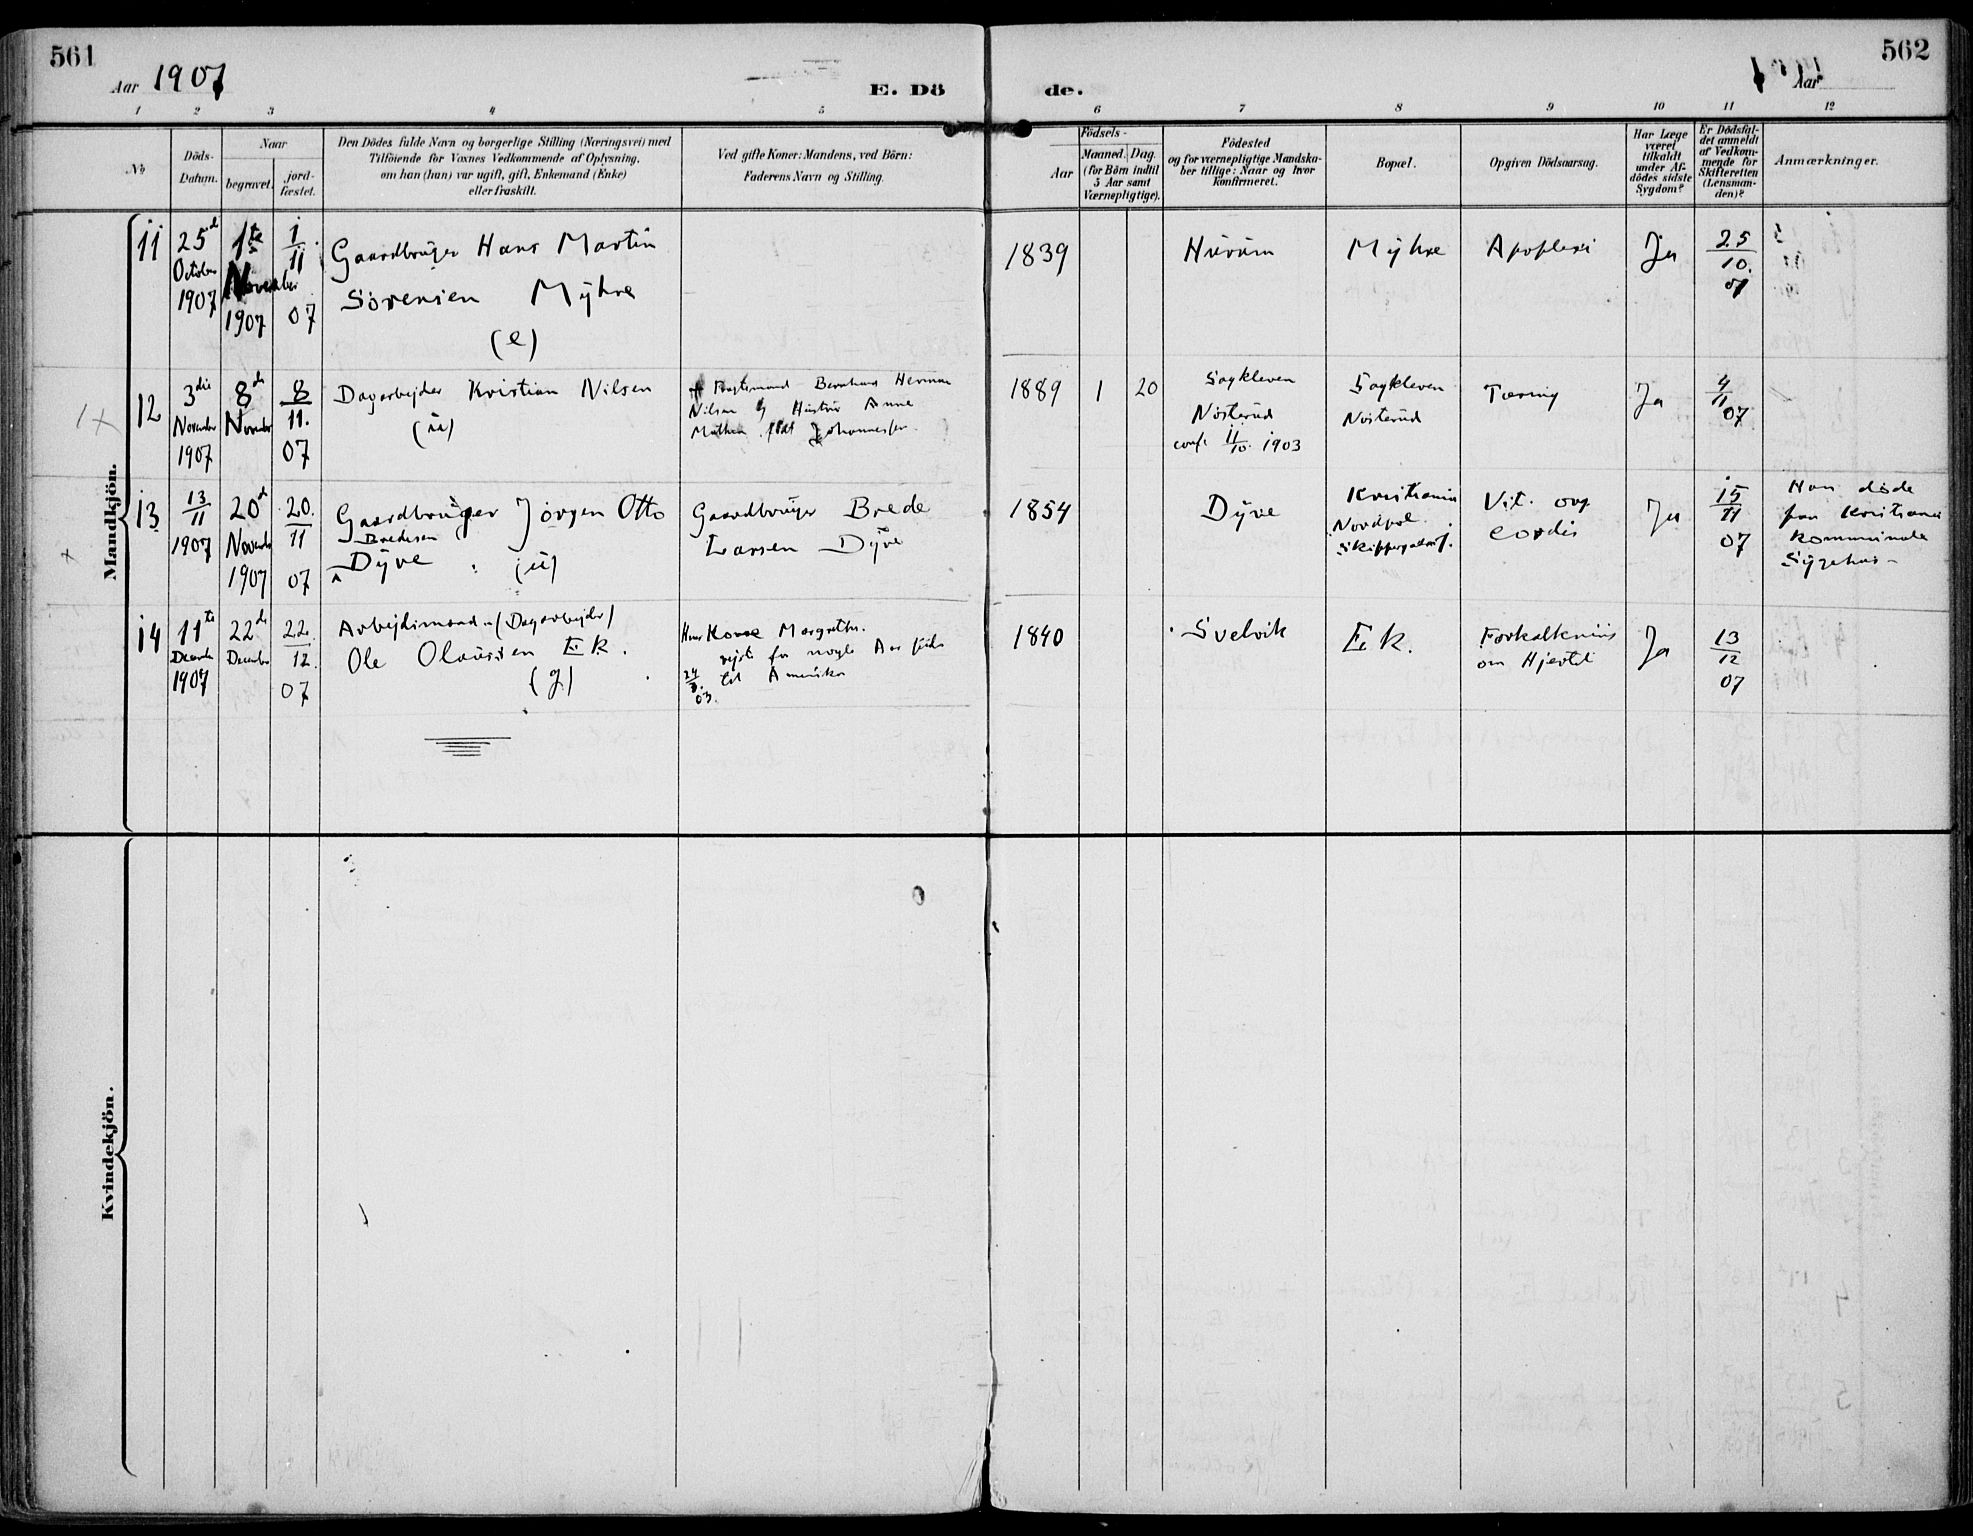 561
Aar 1907
E. Dö
de.
562
Aar
1 2 3 4 5 6 7 8 9 10 11 12
No
Döds-
Datum.
Naar
begravet.
jord-
fæstet.
Den Dödes fulde Navn og borgerlige Stilling (Næringsvei) med
Tilföiende for Voxnes Vedkommende af Oplysning.
om han (hun) var ugift, gift, Enkemand (Enke)
eller fraskilt.
Ved gifte Koner: Mandens, ved Börn:
Faderens Navn og Stilling.
Födsels-
Aar
Maaned. Dag.
(for Börn indtil
5 Aar samt
Værnepligtige).
Födested
og for værnepligtige Mandska-
ber tillige: Naar og hvor
Konfirmeret.
Bopæl.
Opgiven Dödsaarsag.
Har Læge
været
tilkaldt
under Af-
dödes sidste
Sygdom?
Er Dödsfal-
det anmeldt
af Vedkom-
mende for
Skifteretten
(Lensman-
den)?
Anmærkninger.
Mandkjön.
11
25d
October
1907
1ste
November
1907
1
11
07
Gaardbruger Hans Martin
Sörensen Myhre
(e)
1839
Hurum
Myhre
Apoplexi
Ja
25
10.
07
12
3die
November
1907
8de
November
8
11.
07
Dagarbejder Kristian Nilsen
(u)
Bernhard Herman
Nilsen og Hustru Anna
Johannesen
1889 1 20
Sagkleven
Nösterud
conf. 11/10. 1903
Sagkleven
Nösterud
Tæring
Ja
4
11
07
13
13
11
1907
20de
November
1907
20.
11
07
Gaardbruger Jörgen Otto
Bredesen
Dyve (u)
Gaardbruger Brede
Larsen Dyve
1854
Dyve
Kristiania
Nordpol.
Vit. org.
cordis
Ja
15
11
07
Han döde
paa Kristiania
kommunale
Sygehus
14
11te
December
1907
22de
December
22.
12.
07
Arbejdsmand (Dagarbejder)
Ole Olaussen Ek.
(g)
Hans Kone Margrethe
rejste for nogle Aar siden
24
8.
03.
til Amerika
1840
Svelvik
Ek.
Forkalkning
om Hjertet
Ja
13
12
07
Kvindekjön.